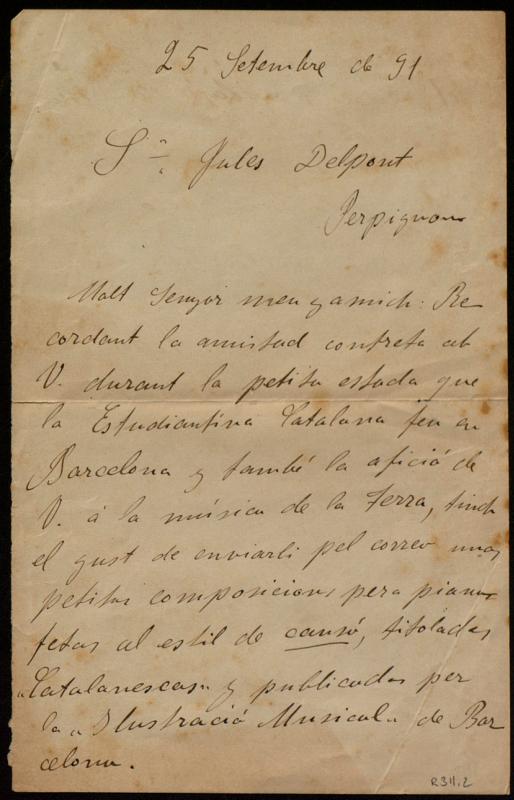 25 Setembre de 91
Sr. Jules Delpont
Perpignan
Molt Senyor meu y amich: Re
cordant la amistad contreta ab
V. durant la petita estada que
la Estudiantina Catalana feu en
Barcelona y també la afició de
V. á la música de la Terra, tinch
el gust de enviarli pel correu unas
petitas composicions pera piano
fetas al estil de cansó, titoladas
"Catalanescas" y publicadas per
la "Ilustració Musical" de Bar
celona.
R311.2